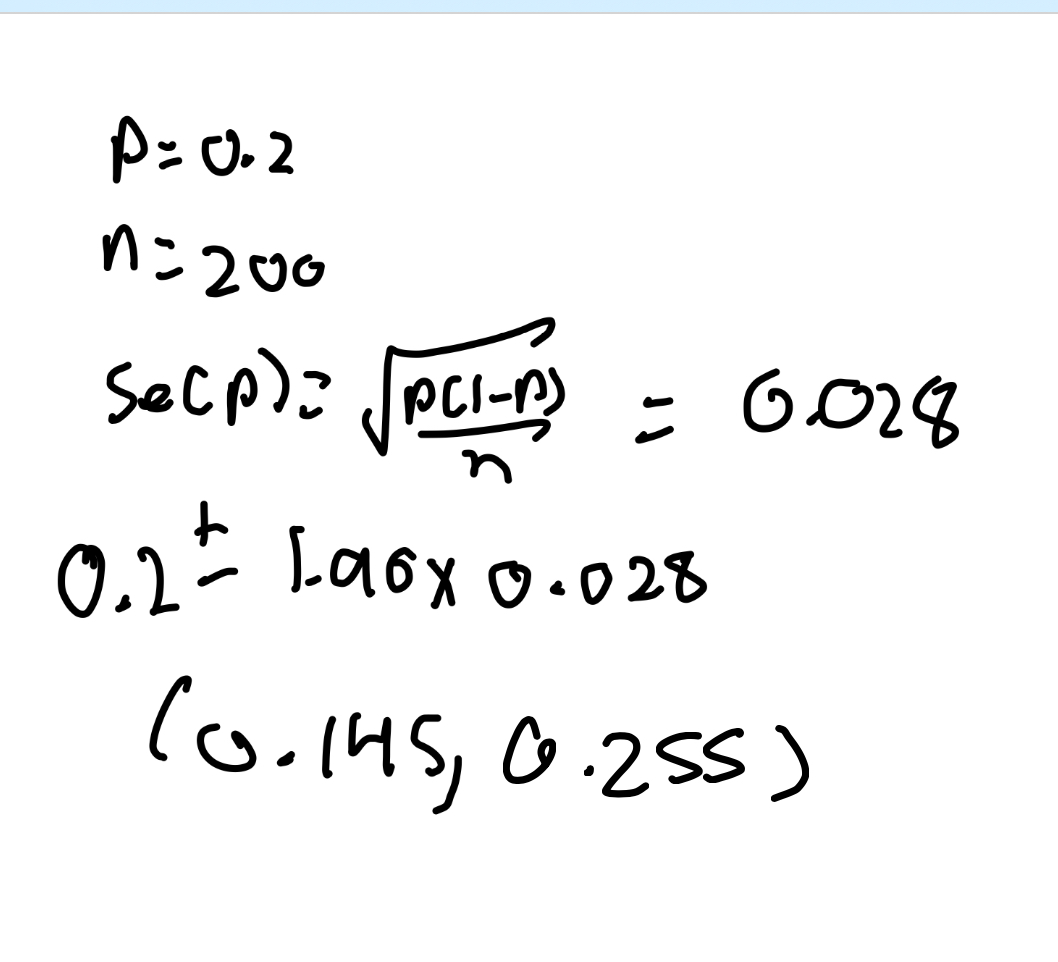 p=0.2
n=200
se(p)=√(p(1-p)/n) = 0.028
0.2 ± 1.96x 0.028
(0.145, 0.255)